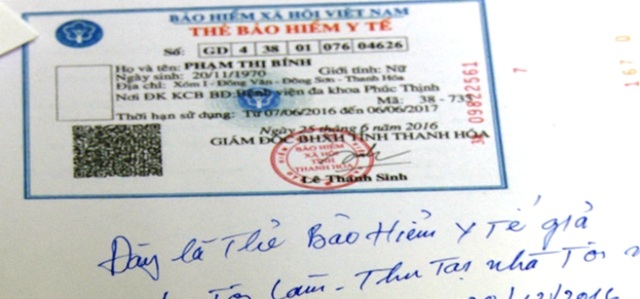 BẢO HIỂM XÃ HỘI VIỆT NAM
THẺ BẢO HIỂM Y TẾ
Số: GD 4 38 01 076 04626
Họ và tên: PHẠM THỊ BÌNH
Ngày sinh: 20/11/1970 Giới tính: Nữ
Địa chỉ: Xóm I - Đông Văn - Đông Sơn - Thanh Hóa
Nơi ĐK KCB BĐ: Bệnh viện đa khoa Phúc Thịnh
Mã: 38 - 735
Thời hạn sử dụng: Từ 07/06/2016 đến 06/06/2017
Ngày 25 tháng 5 năm 2016
GIÁM ĐỐC BHXH TỈNH THANH HÓA
BẢO HIỂM
XÃ HỘI
TỈNH
THANH HÓA
Lê Thanh Sinh
09822561
7
167 0
Đây là Thẻ Bảo Hiểm Y Tế giả
Tôi Cầm - Thu Tại nhà Tôi